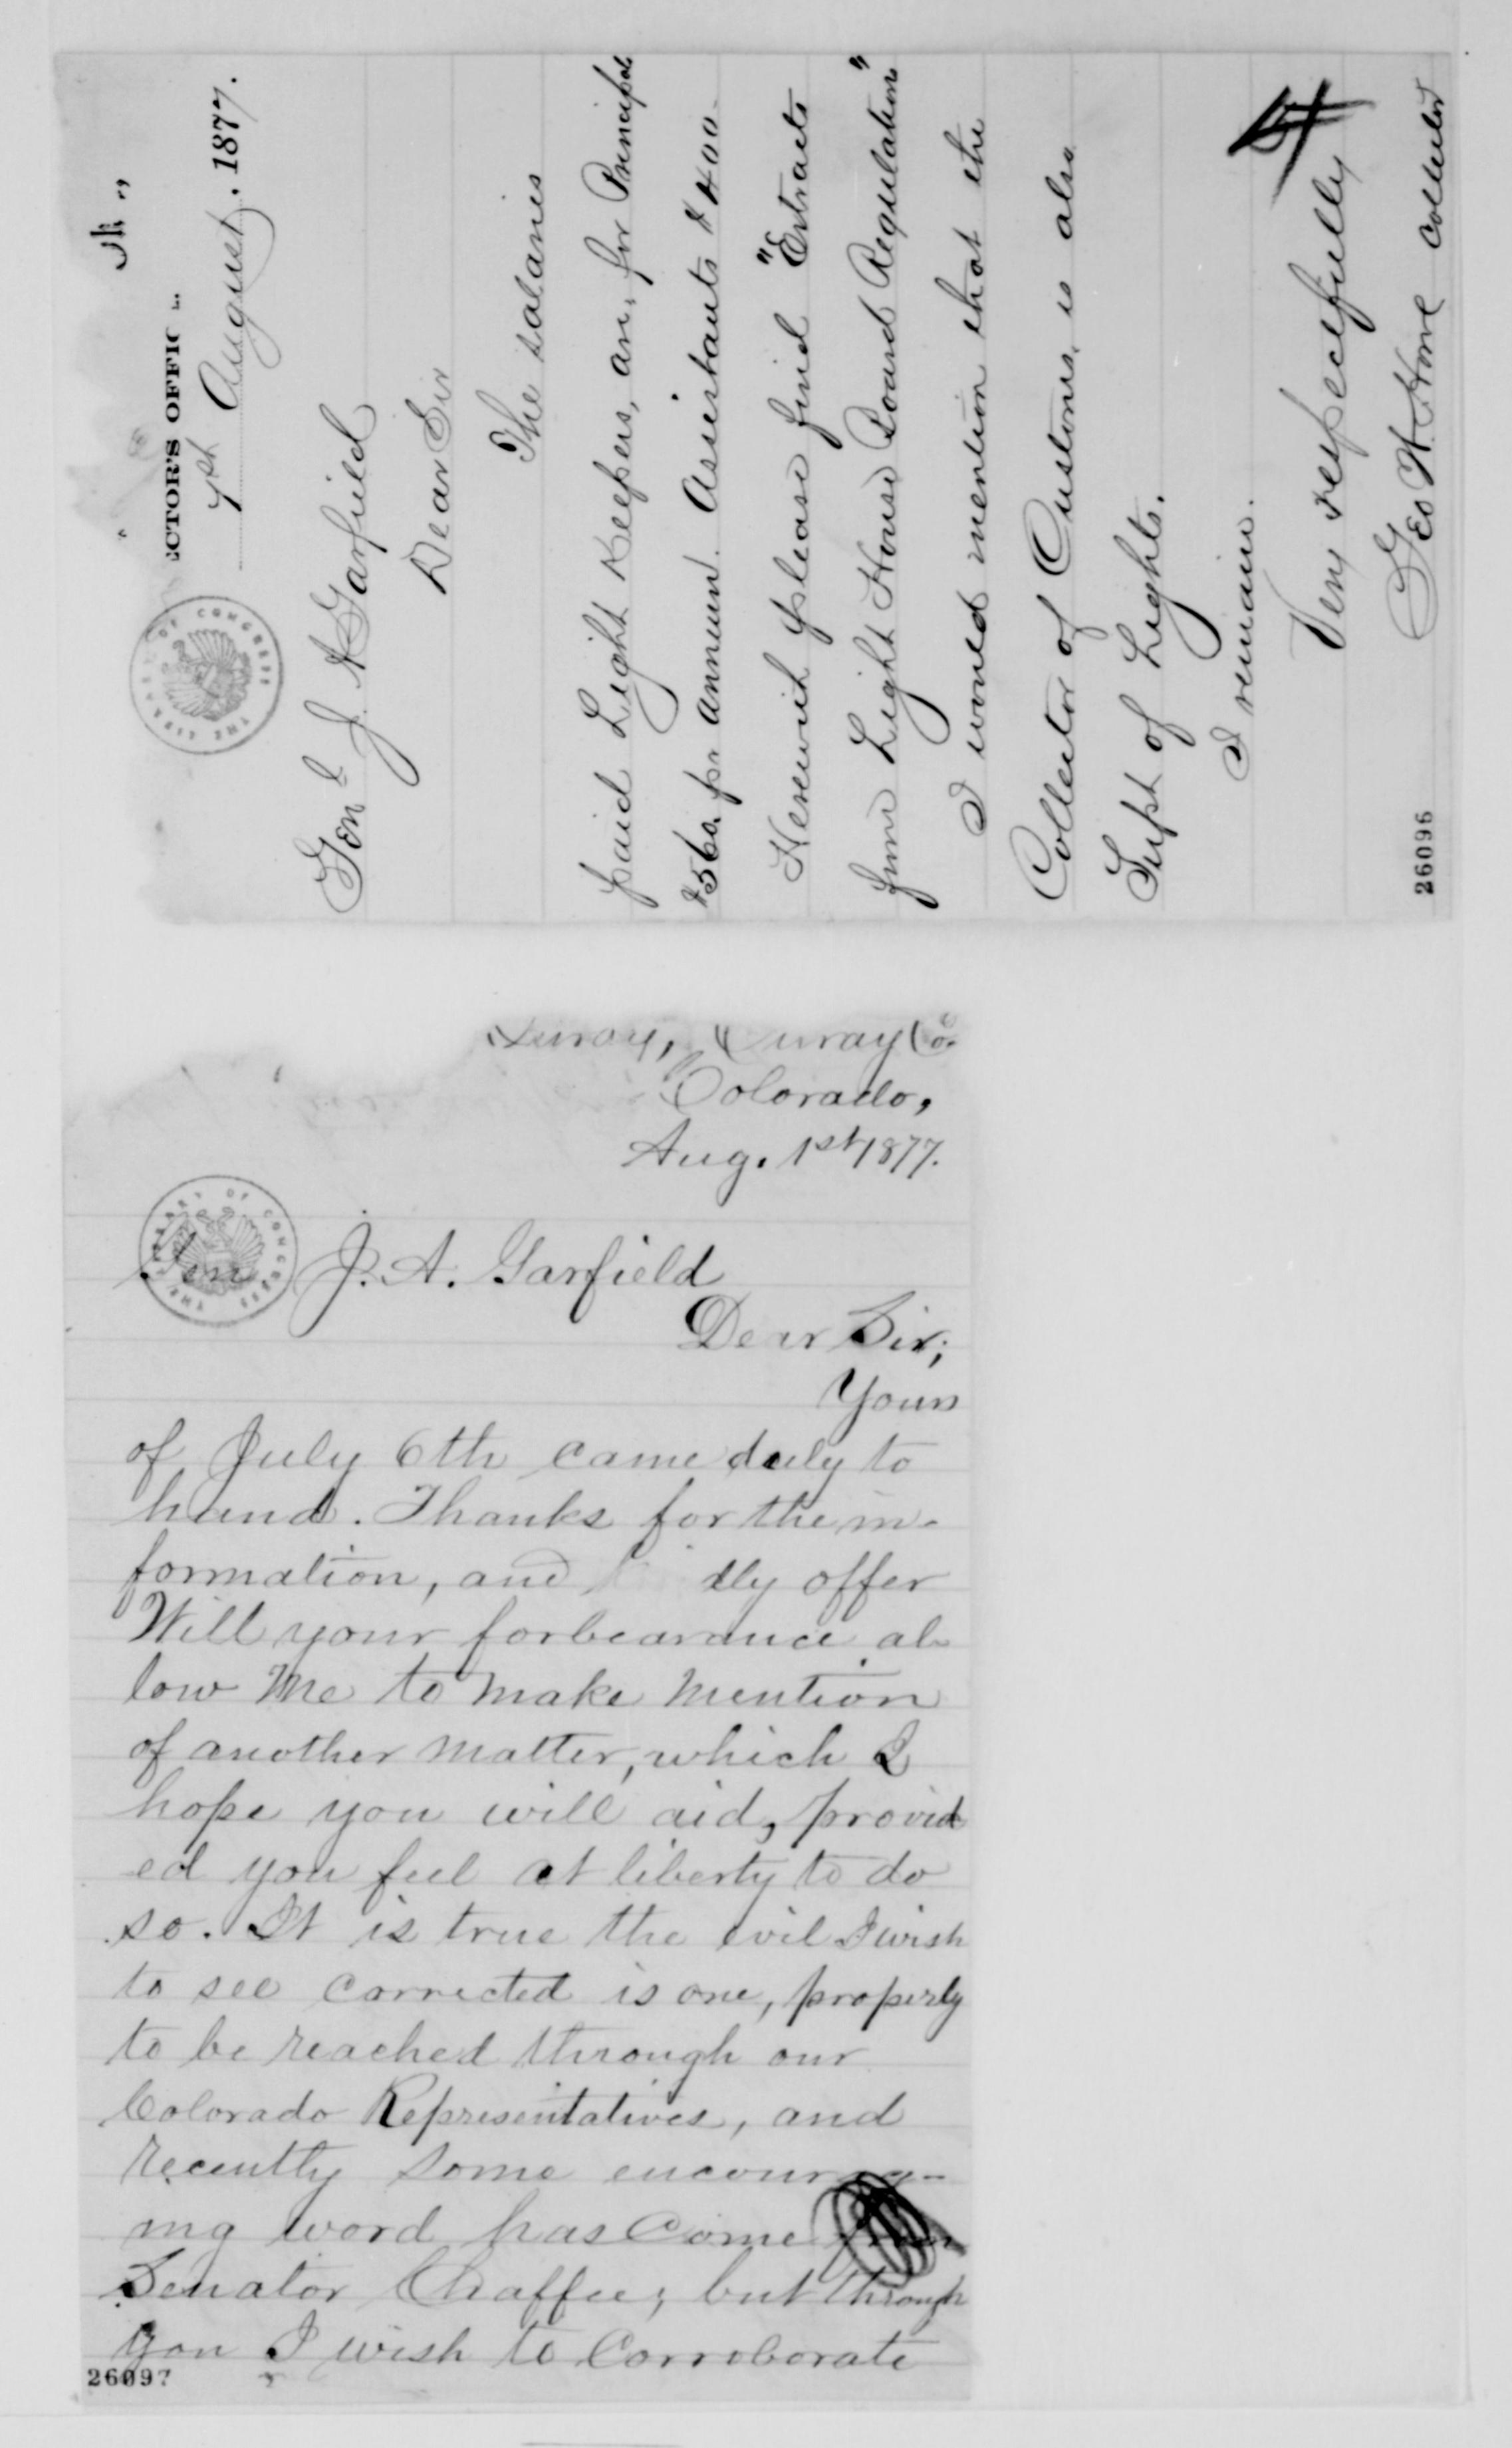 CTOR'S OFFIC
1st August, 1877.
Genl J. A Garfield
Dear Sir
The salaries
paid Light Keepers, are, for Principal
$560. pr annum. Assistants $400.
Herewith please find "Extracts
from Light House Board Regulations"
I would mention that the
Collector of Customs, is also
Supt of Lights.
I remain.
Very respectfully
Geo W. Howe Collector
26096
Ouray, Ouray Co.
Colorado,
Aug. 1st 1877.
Gen. J. A. Garfield
Dear Sir;
Yours
of July 6th came duly to
hand. Thanks for the in-
formation, and dly offer
Will your forbearance al-
low me to make mention
of another matter, which I
hope you will aid, provid-
ed you feel at liberty to do
so. It is true the evil I wish
to see corrected is one, properly
to be reached through our
Colorado Representatives, and
recently some encourag-
ing word has come from
Senator Chaffee; but through
you I wish to corroborate
26097
THE LIBRARY OF CONGRESS
THE LIBRARY OF CONGRESS